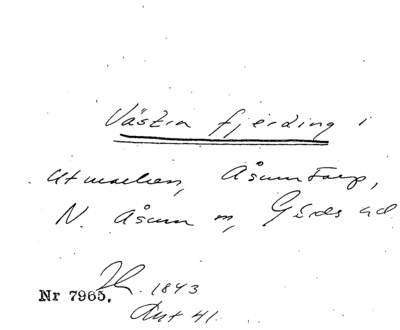 Västra fjerding i
utmarken, Åsumtorp,
N. Åsum m, Gärds hd
Nr 7965. 1843
Akt 41.